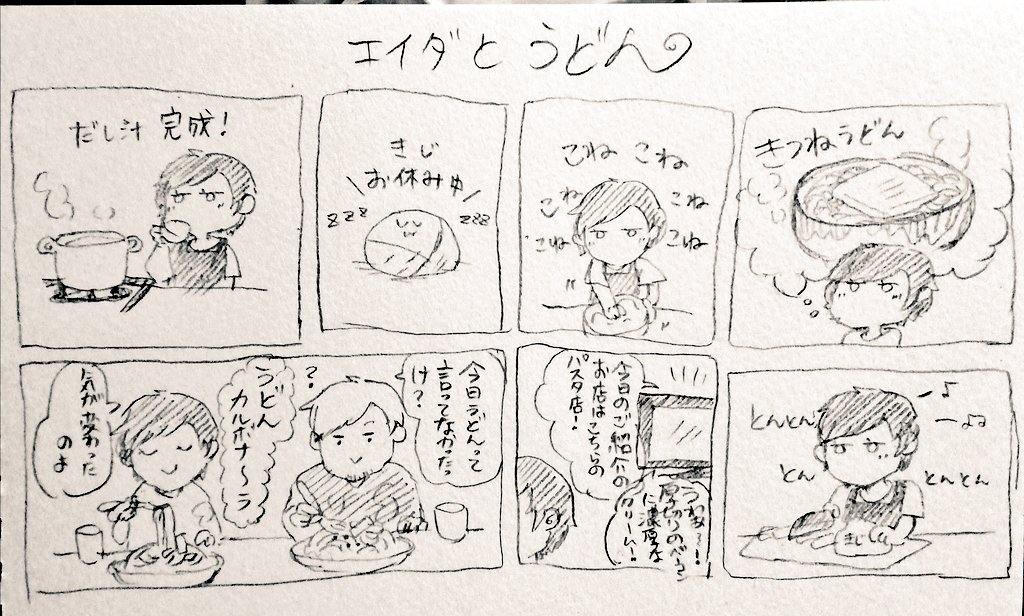 エイダと うどん
きつねうどん
こね こね
こね
こね
こね
こね
きじ
お休み中
zzz
zzz
だし汁 完成!
とんとん
とん
とんとん
きじ
今日のご紹介の
お店はこちらの
パスタ店!
厚切りのべ
に濃厚な
クリーム!
今日うどんって
言ってなかったっ
け?
?
うどん
カルボナ〜ラ
気が変わった
のよ